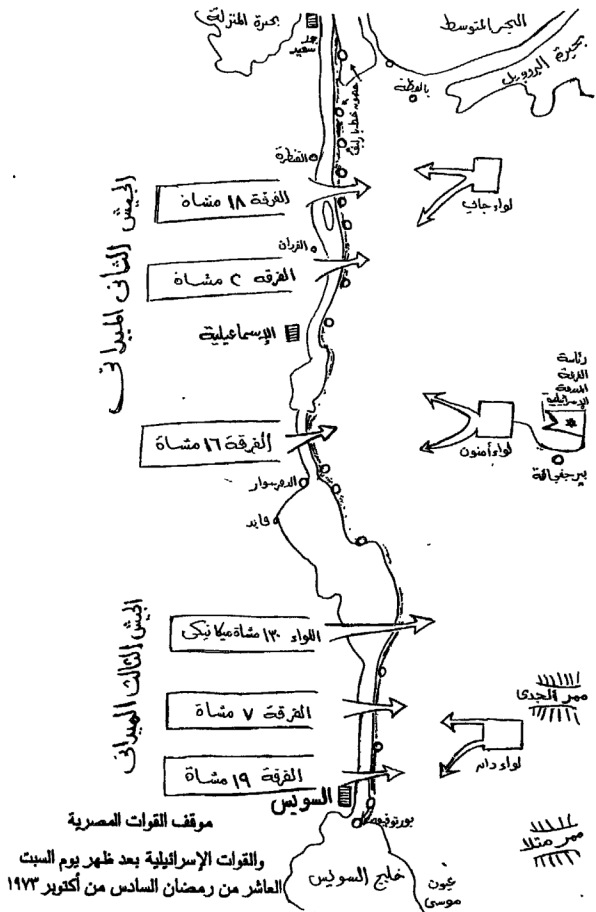 بحيرة المنزلة
بور سعيد
البحر المتوسط
بحيرة البردويل
بالوظة
حصون خط بارليف
القنطرة
الفرقة ١٨ مشاة
لواء جابي
الفردان
الفرقة ٢ مشاة
الجيش الثانى الميدانى
الإسماعيلية
رئاسة
الفرقة
المدرعة
الإسرائيلية
لواء أمنون
بير جفجافة
الفرقة ١٦ مشاة
الدفرسوار
فايد
اللواء ١٣٠ مشاة ميكانيكى
الجيش الثالث الميدانى
ممر الجدى
الفرقة ٧ مشاة
لواء دان
الفرقة ١٩ مشاة
السويس
بور توفيق
ممر متلا
خليج السويس
عيون
موسى
موقف القوات المصرية
والقوات الإسرائيلية بعد ظهر يوم السبت
العاشر من رمضان السادس من أكتوبر ١٩٧٣